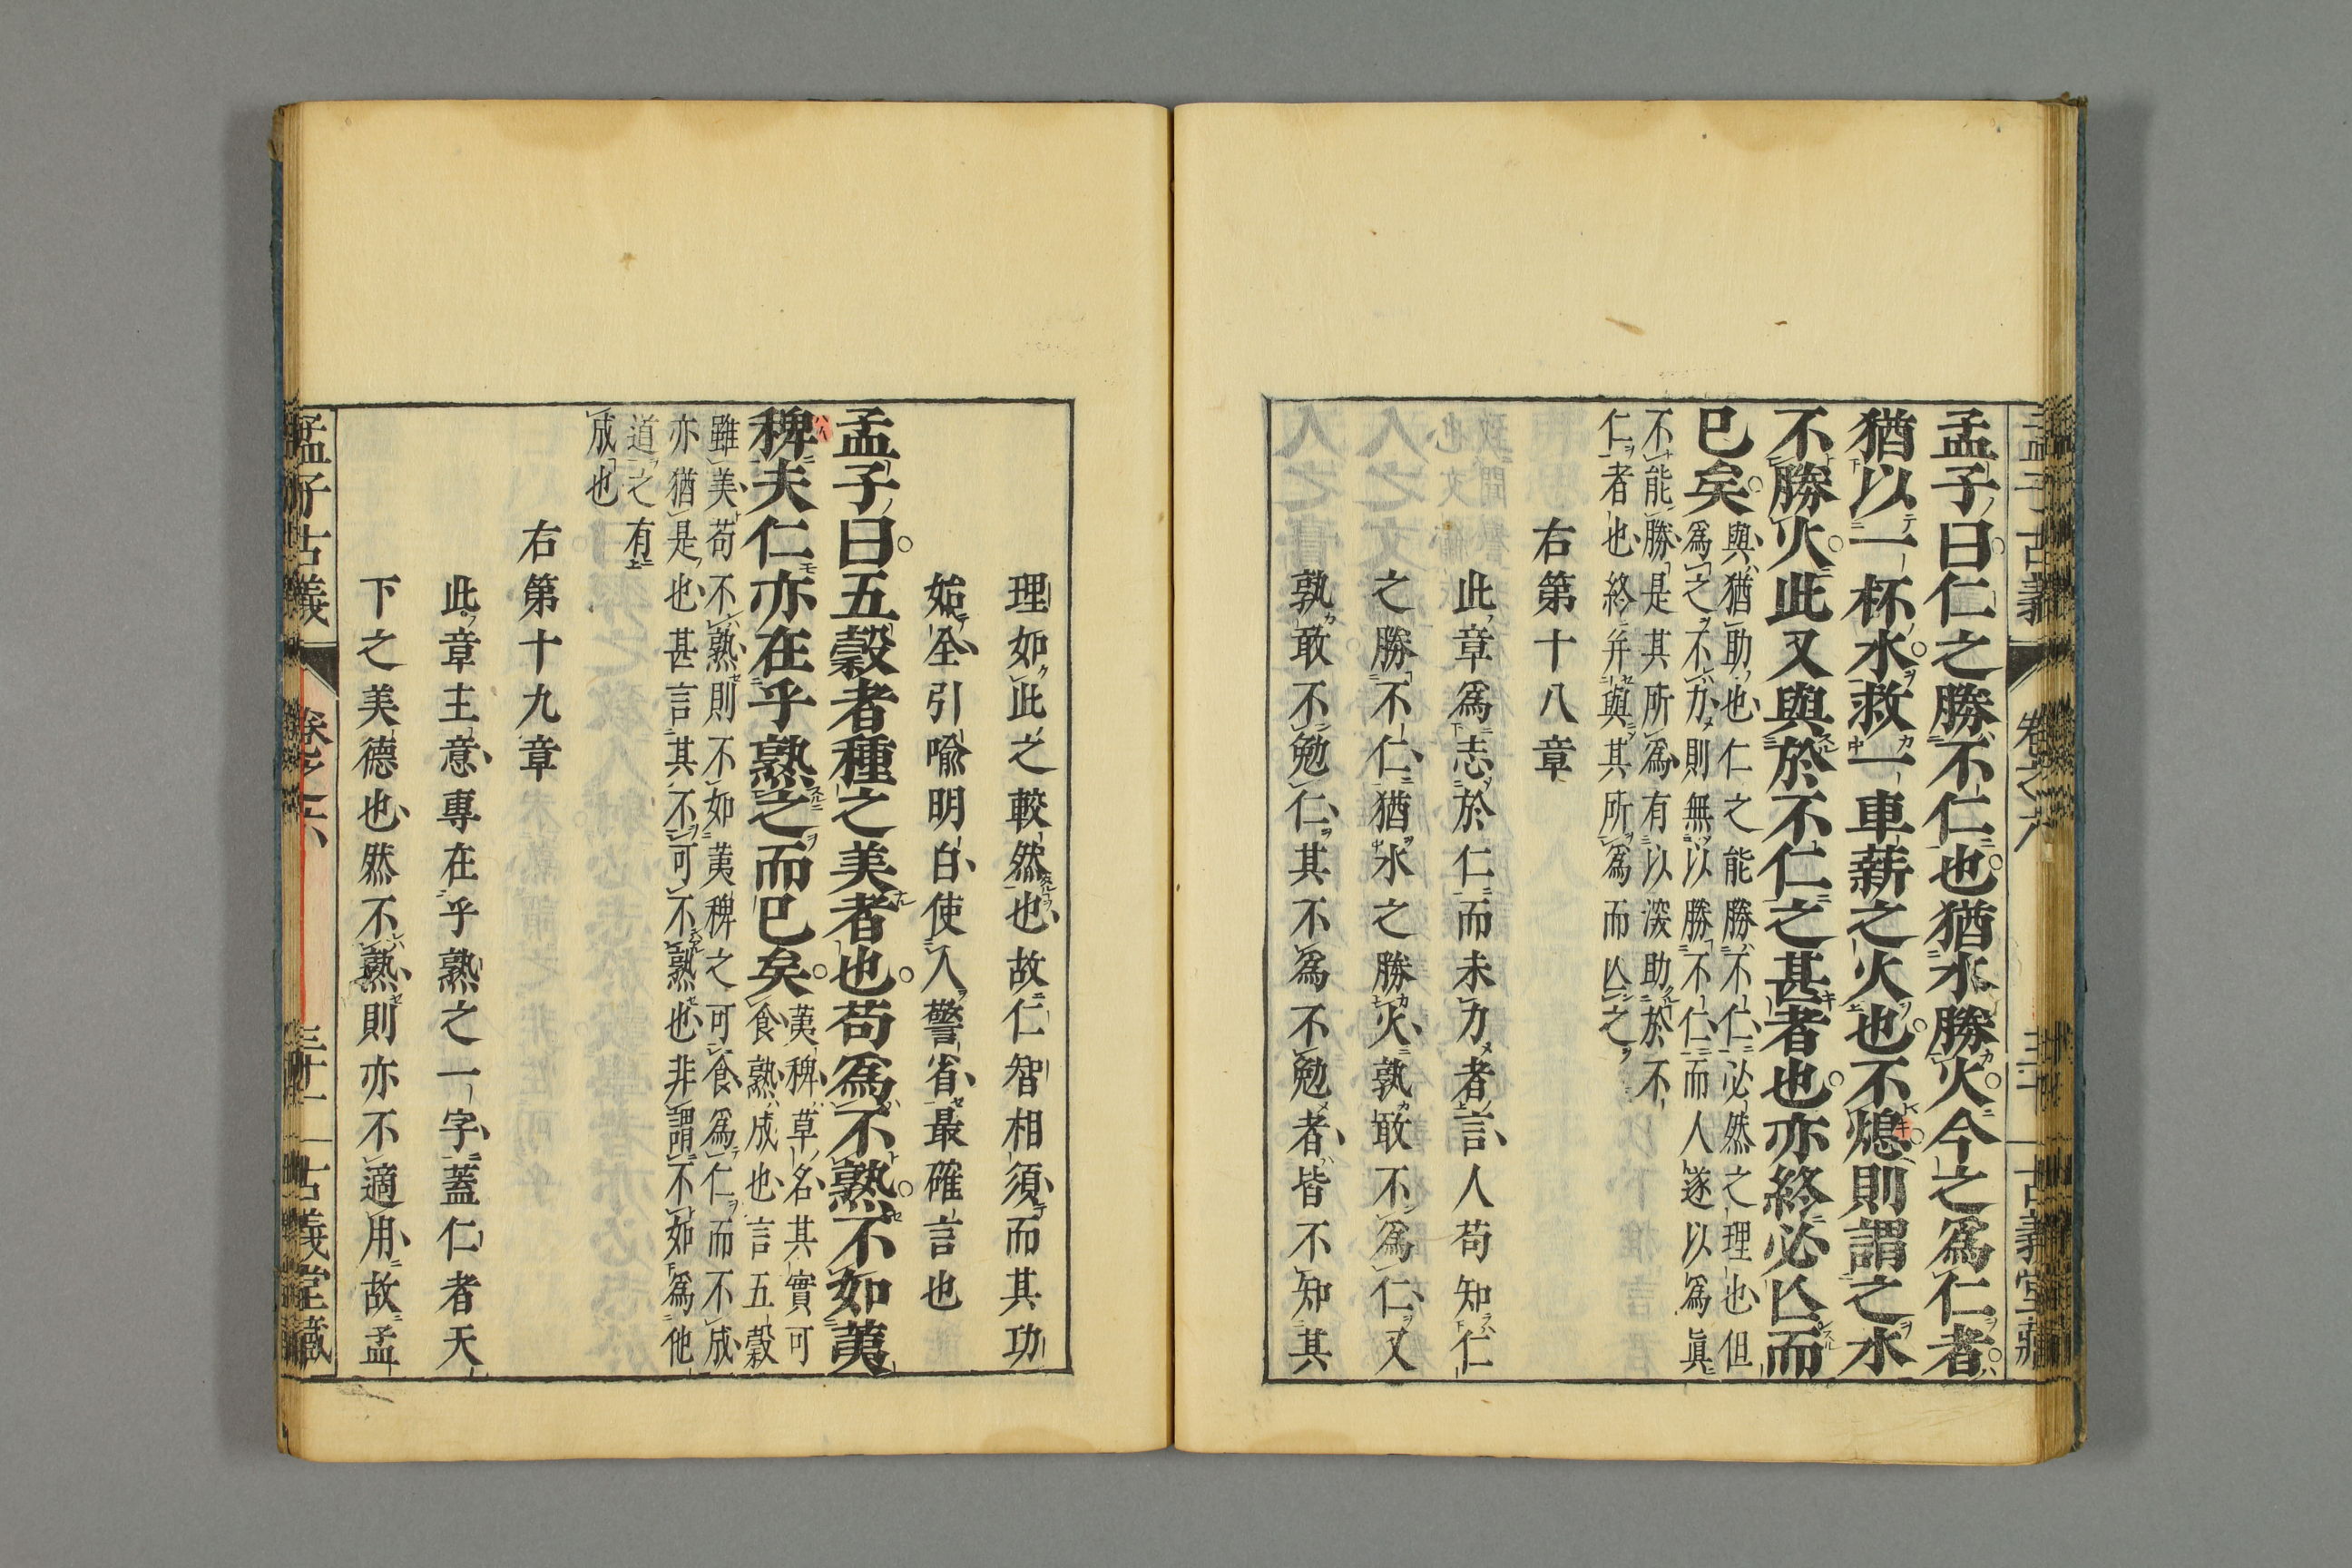 孟子古義
卷之六
古義堂藏
孟子曰仁之勝不仁也猶水勝火今之爲仁者
猶以一杯水救一車薪之火也不熄則謂之水
不勝火此又與於不仁之甚者也亦終必亾而
已矣
與猶助也仁之能勝不仁必然之理也但
爲之不力則無以勝不仁而人遂以爲眞
不能勝是其所爲有以深助於不
仁者也終并與其所爲而亾之
右第十八章
此章爲志於仁而未力者言人苟知仁
之勝不仁猶水之勝火孰敢不爲仁又
孰敢不勉仁其不爲不勉者皆不知其
理如此之較然也故仁智相須而其功
始全引喩明白使人警省最確言也
孟子曰五穀者種之美者也苟爲不熟不如荑
稗夫仁亦在乎熟之而已矣
荑稗草名其實可
食熟成也言五穀
雖美苟不熟則不如荑稗之可食爲仁而不成
亦猶是也甚言其不可不熟也非謂不如爲他
道之有
成也
右第十九章
此章主意專在乎熟之一字蓋仁者天
下之美德也然不熟則亦不適用故孟
孟子古義
卷之六
三十一
古義堂藏